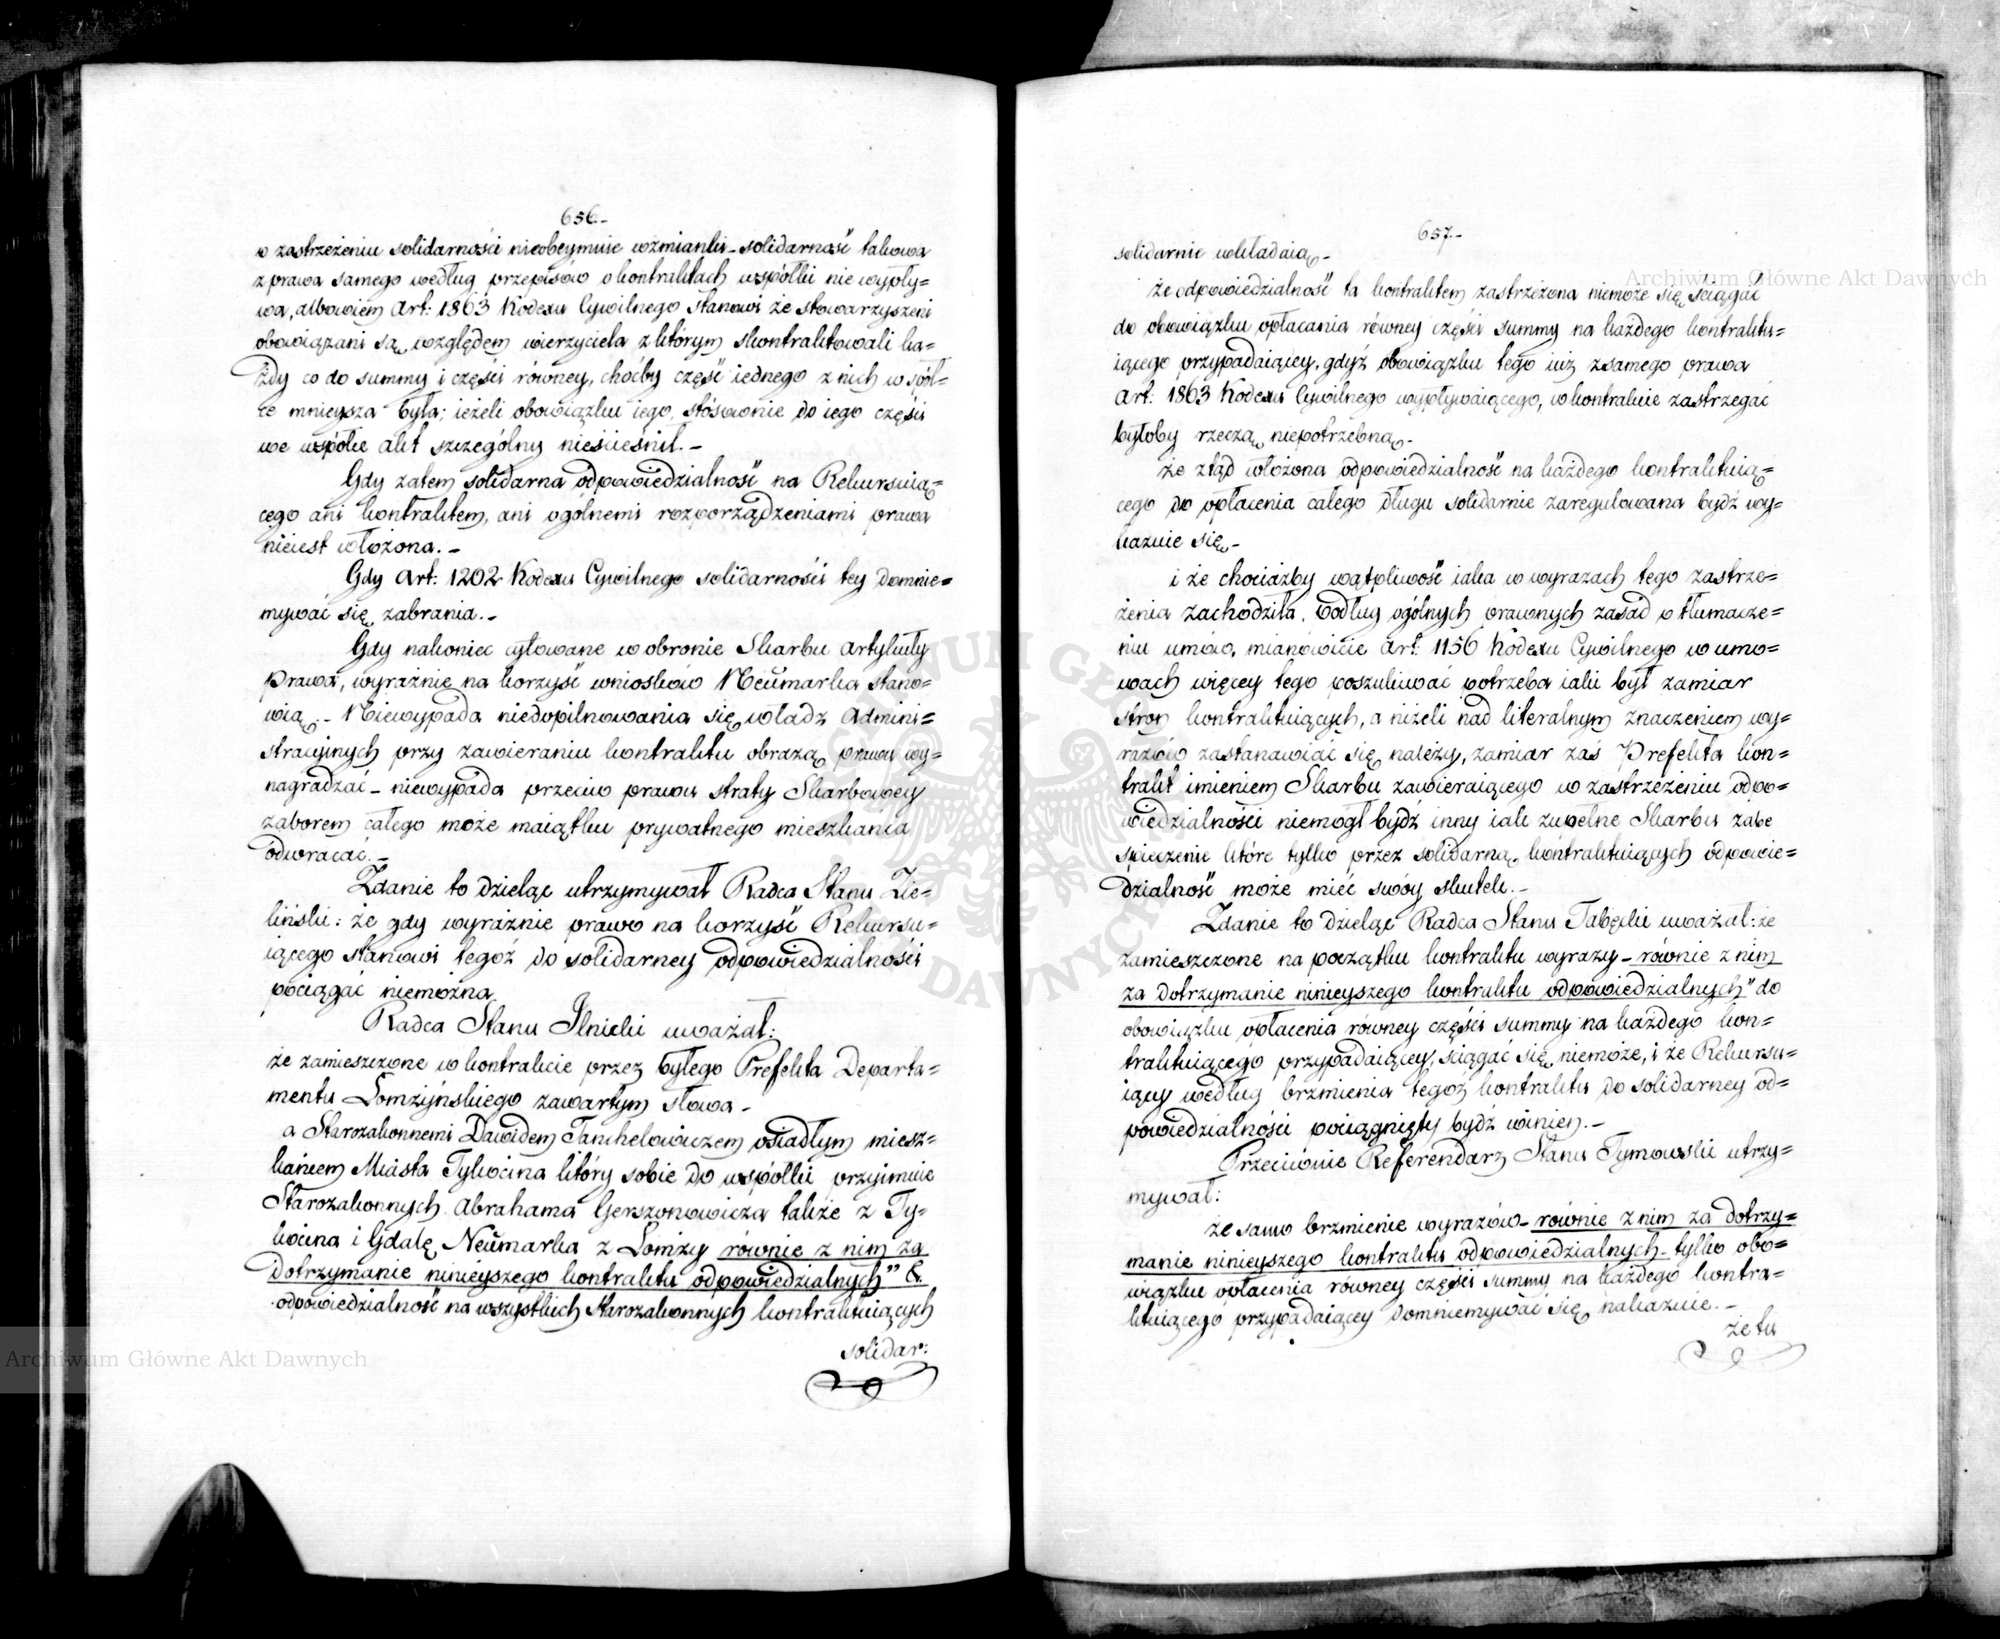 656.-
o zastrzeżeniu solidarności nieobeymuie wzmianki_ solidarność takowa
z prawa samego według przepisów o kontraktach wspólki nie wypły=
wa, albowiem Art: 1863 Kodexu Cywilnego stanowi że stowarzyszeni
obowiązani są względem wierzyciela z którym skontraktowali ka=
żdy co do summy i części równey, choćby część iednego z nich w spół=
ce mnieysza była; ieżeli obowiązku iego, stósownie do iego części
we wspólce akt szczególny nieścieśnił._
Gdy zatem solidarna odpowiedzialność na Rekursuią=
cego ani kontraktem, ani ogólnemi rozporządzeniami prawa
nieiest włożona._
Gdy Art: 1202 Kodexu Cywilnego solidarności tey domnie=
mywać się zabrania._
Gdy nakoniec cytowane w obronie Skarbu Artykuły
Prawa, wyraźnie na korzyść wniosków Neümarka stano=
wią._ Niewypada niedopilnowania się władz Admini=
stracyinych przy zawieraniu kontraktu obrazą prawa wy=
nagradzać_ niewypada przeciw prawu straty Skarbowey
zaborem całego może maiątku prywatnego mieszkańca
odwracać._
Zdanie to dzieląc utrzymywał Radca Stanu Zie=
liński: że gdy wyraźnie prawo na korzyść Rekursu=
iącego stanowi tegoż do solidarney odpowiedzialności
pociągać niemożna
Radca Stanu Ilnicki uważał:
że zamieszczone w kontrakcie przez byłego Prefekta Departa=
mentu Łomżyńskiego zawartym słowa_
a Starozakonnemi Dawidem Tanchelowiczem osiadłym miesz=
kańcem Miasta Tykocina który sobie do wspólki przyimuie
Starozakonnych Abrahama Gerszonowicza także z Ty=
kocina i Gdalę Neümarka z Łomży równie z nim za
dotrzymanie ninieyszego kontraktu odpowiedzialnych" &
odpowiedzialność na wszystkich Starozakonnych kontraktuiących
solidar:
657.-
solidarnie wkładaią_
że odpowiedzialność ta kontraktem zastrzeżona niemoże się ściągać
do obowiązku opłacania równey części summy na każdego kontraktu=
iącego przypadaiącey, gdyż obowiązku tego iuż z samego prawa
Art: 1863 Kodexu Cywilnego wypływaiącego, w kontrakcie zastrzegać
byłoby rzeczą niepotrzebną_
że ztąd włożona odpowiedzialność na każdego kontraktuią=
cego do opłacenia całego długu solidarnie zaregulowana bydź wy=
kazuie się_
i że chociażby wątpliwość iaka w wyrazach tego zastrze=
żenia zachodziła, podług ogólnych prawnych zasad o tłumacze=
niu umów, mianowicie Art: 1156 Kodexu Cywilnego w umo=
wach więcey tego poszukiwać potrzeba iaki był zamiar
stron kontraktuiących, a niżeli nad literalnym znaczeniem wy=
razów zastanawiać się należy, zamiar zaś Prefekta kon=
trakt imieniem Skarbu zawieraiącego w zastrzeżeniu odpo=
wiedzialności niemógł bydź inny iak zupełne Skarbu zabe
śpieczenie które tylko przez solidarną kontraktuiących odpowie=
dzialność może mieć swóy skutek._
Zdanie to dzieląc Radca Stanu Tabęcki uważał: że
zamieszczone na początku kontraktu wyrazy_ równie z nim
za dotrzymanie ninieyszego kontraktu odpowiedzialnych" do
obowiązku opłacenia równey części summy na każdego kon=
traktuiącego przypadaiącey, sciągać się niemoże, i że Rekursu=
iący według brzmienia tegoż kontraktu do solidarney od=
powiedzialności pociągnięty bydź winien._
Przeciwnie Referendarz Stanu Tymowski utrzy=
mywał:
że samo brzmienie wyrazów_ równie z nim za dotrzy=
manie ninieyszego kontraktu odpowiedzialnych_ tylko obo=
wiązku opłacenia równey części summy na każdego kontra=
ktuiącego przypadaiącey domniemywać się nakazuie._
że tu
Archiwum Główne Akt Dawnych
Archiwum Główne Akt Dawnych